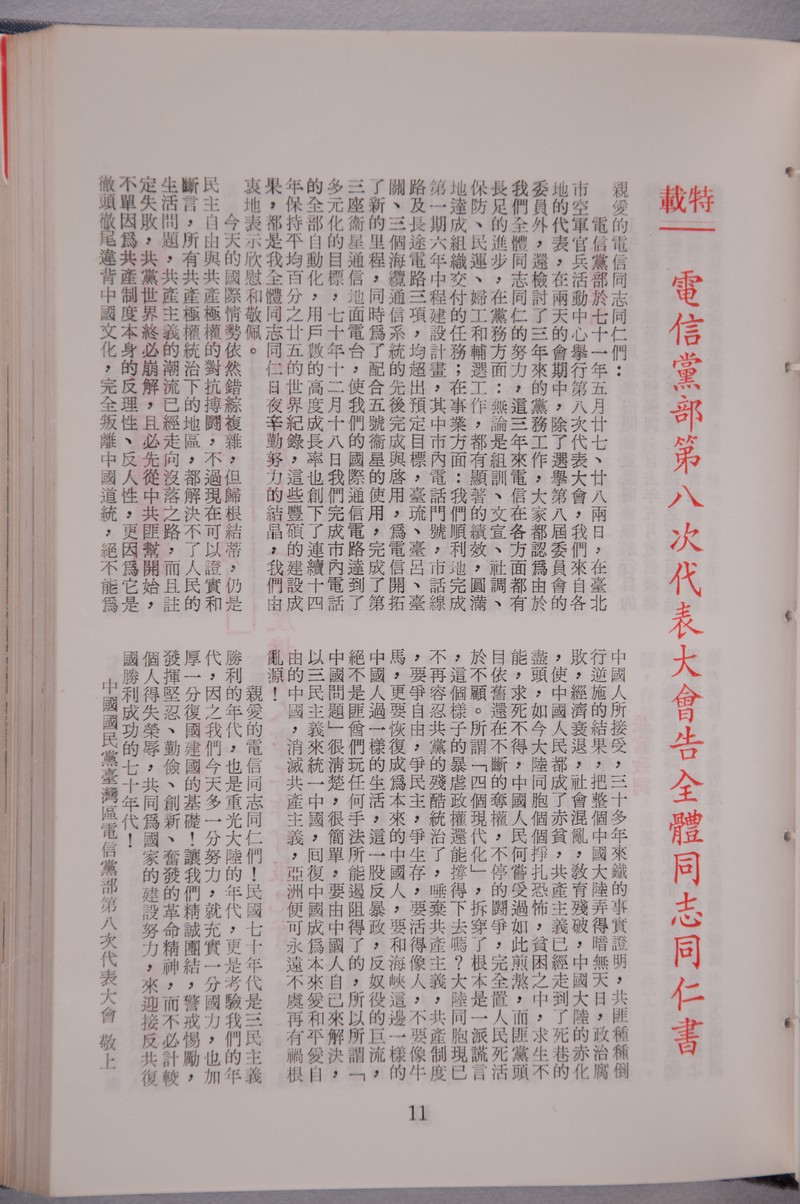 特載
電信黨部第八次代表大會告全體同志同仁書
親愛的電信同志同仁們：
電信黨部於七十一年五月廿七、廿八兩日，在臺北
市空軍官兵活動中心舉行第八次代表大會，我們來自各
地的代表，在兩天的會期中，除了選舉第八屆委員會的
委員外，還檢討了三年來的黨務工作，大家都認為由於
我們全體同志同仁的努力，這三年來電信在各方面都有
長足的進步，在黨務方面：無論是組訓、文宣、社調、
保防、民運、婦工和輔選工作，都有顯著的績效，圓滿
地達成組織交付的任務；在事業方面：我們順利地完成
第一期六年中程建設計畫，其中市內電話門號，市話線
路及長途電路三項，均超出預定目標，臺琉、臺呂、臺
關、三個海纜通信系統的先後完成與啓用，為電信開拓
了新的里程，同時為了配合五號衞星的使用，完成了第
三座衞星通信地面電台，使我們的國際通信電路達到了
多元化的目標，七十年十二月十八日我們完成市內電話
的全部自動化，用戶數的高度成長率也創下了連續十四
年保持平均百分之廿五的世界紀錄，這些豐碩的建設成
果，都是我全體同志同仁日夜辛勤努力的結晶，我們由
衷地表示欣慰和敬佩。
今天的國際情勢依然錯綜複雜，但歸根結蒂，仍是
民主自由與共產極權的對抗搏鬪，不過現在可以證實和
斷言，所有共產極權統治下的地區，都解決不了人民的
生活問題，共產主義的潮流已經走向沒落之路，而且註
定失敗，共黨世界終必崩解，且必先從中共匪幫開始，
不單因為共產制度本身的反理性、反人性，更因為它是
徹頭徹尾違背中國文化，完全叛離中國道統，絕不能為
中國人所接受，三十多年來鐵的事實證明，共匪種種倒
行逆施的結果，把整個中國大陸弄得暗無天日，政治腐
敗，經濟衰退，社會混亂，教育殘破，中國大陸的赤化
，使中國人民都成了赤貧，共產主義已經走到了死巷的
盡頭，如今大陸同胞個個掙扎恐怖，貧困之中，求生不
能，求死不得，中國人民何嘗受過如此煎熬，而匪黨頭
目依舊還在不斷的奪權，不停的鬪爭，完全置人民死活
於不顧。所謂「四個現代化」，拆穿了根本是一派謊言
，這個樣子的暴虐政權還能撐得下去嗎？大陸同胞現已
不再容忍共黨的殘酷統治了，唾棄共產主義，共產制度
，要爭自由，爭民主，爭生存，要活得像人，不要像牛
馬，更要恢復成為本來的中國人，要和海峽這邊一樣的
中國人過一樣的生活，這一股反暴政，反奴役的巨流，
絕不是匪酋們玩任何手法所能遏阻得了的，所以所謂「
中國問題」很清楚，很簡單，要由中國人自己來解決，
以三民主義來統一中國，囘復中國成為本來愛和平愛自
由的中國，消滅共產主義，亞洲便可永遠不虞再有禍根
亂源！
親愛的電信同志同仁們！民國七十年代是三民主義
勝利的年代，也是重光大陸的年代，更是考驗我們的年
代，因之我們今天多一分努力，就充實一分國力，也加
厚一分復國建國的基礎！讓我們精誠團結，警戒惕勵，
發揮堅忍、勤儉、創新、奮發的革命精神，而不必計較
個人得失榮辱，共同為國家的建設努力，來迎接反共復
國勝利成功的七十年代！
中國國民黨臺灣區電信黨部第八次代表大會　敬上
11